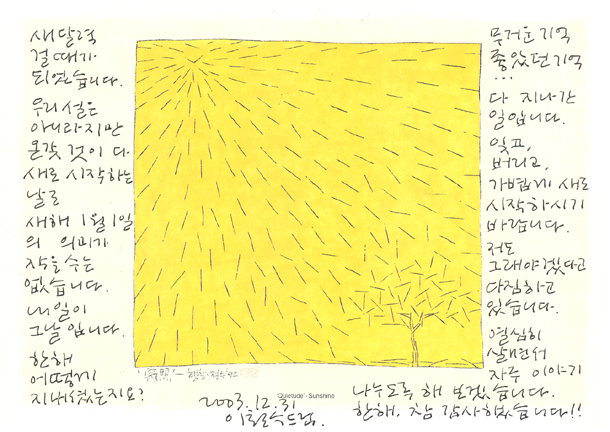 새달력
걸 때가
되었습니다.
우리 설은
아니라지만
온갖 것이 다
새로 시작하는
날로
새해 1월 1일
의 의미가
작을 수는
없습니다.
내일이
그날입니다.
한해
어떻게
지내셨는지요?
무거운 기억
좋았던 기억
...
다 지나간
일입니다.
잊고,
버리고,
가볍게 새로
시작하시기
바랍니다.
저도
그래야겠다고
다짐하고
있습니다.
열심히
살면서
자주 이야기
나누도록 해 보겠습니다.
한해, 참 감사했습니다!!
"Quietude"- Sunshine
2003.12.31
이철수 드림.